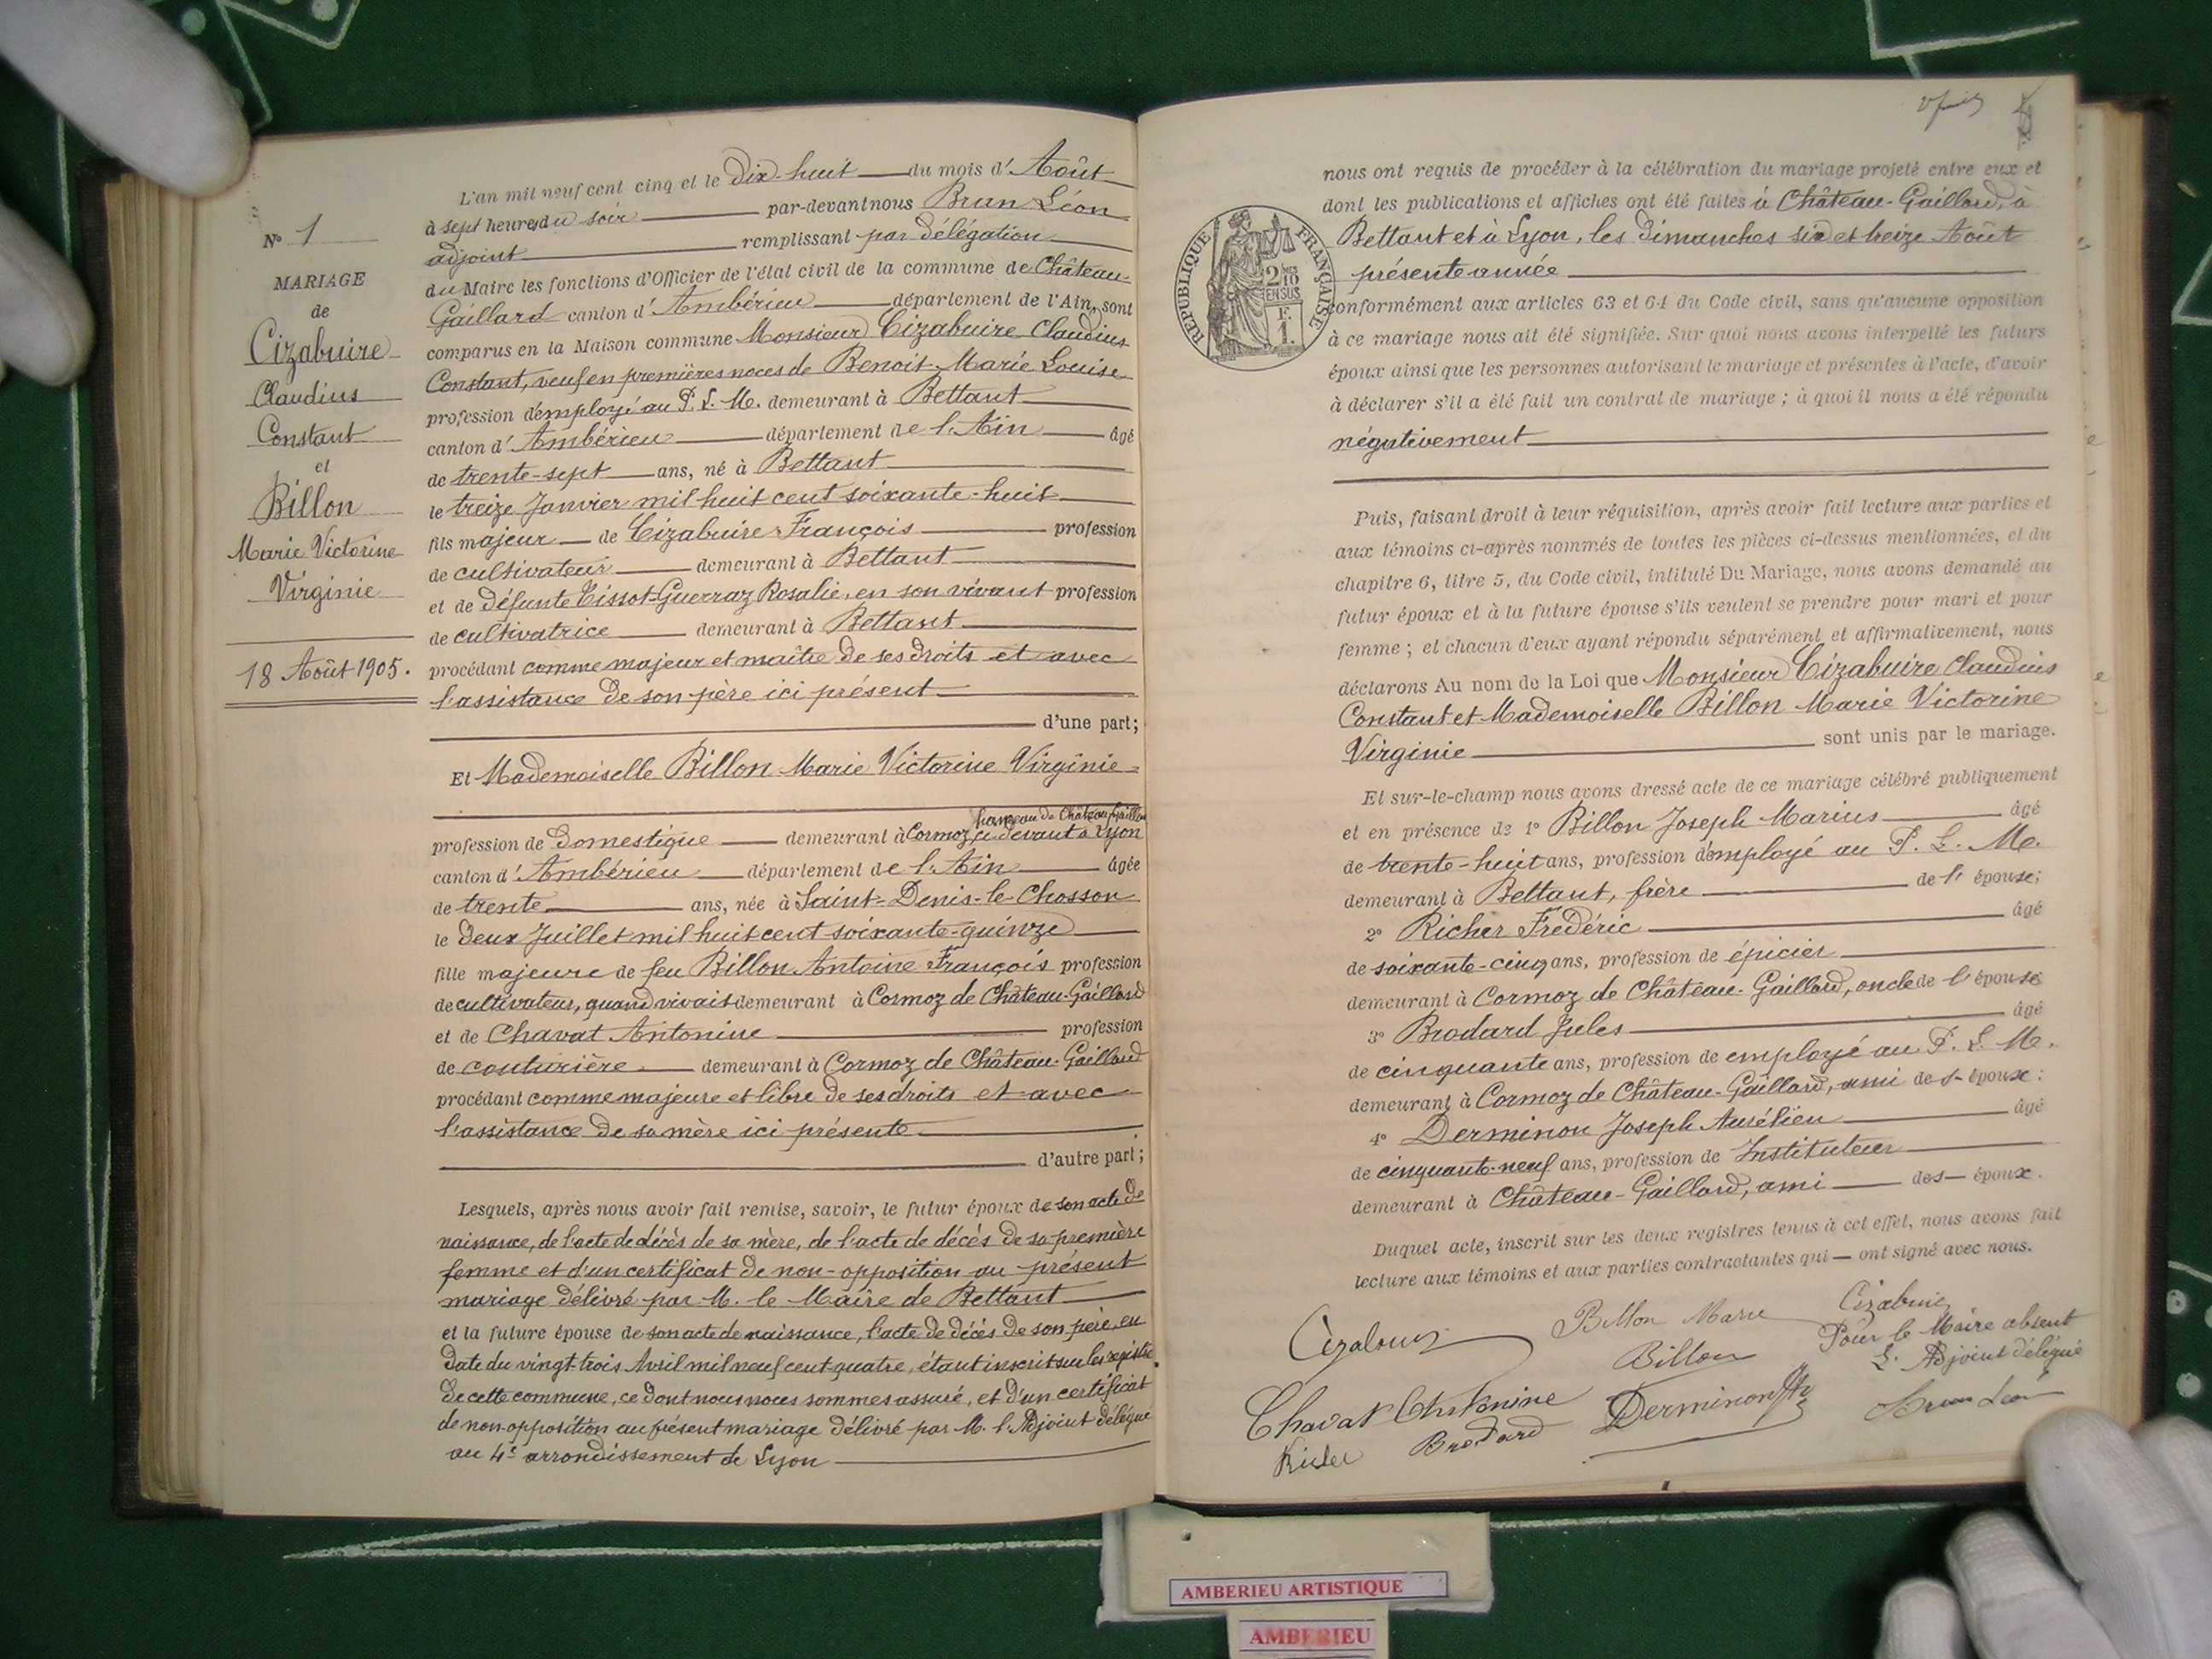 L'an mil neuf cent cinq et le Dix-huit du mois d'Août
à sept heures du soir par-devant nous Brun Léon
adjoint remplissant par délégation
du Maire les fonctions d'Officier de l'état civil de la commune de Château-
Gaillard canton d'Ambérieu département de l'Ain, sont
comparus en la Maison commune Monsieur Cizabuire Claudius
Constant, veuf en premières noces de Benoit Marie Louise
profession d'employé au P. L. M. demeurant à Bettant
canton d'Ambérieu département de l'Ain âgé
de trente-sept ans, né à Bettant
le treize Janvier mil huit cent soixante-huit
fils majeur de Cizabuire François profession
de cultivateur demeurant à Bettant
et de défunte Tissot-Guerraz Rosalie, en son vivant profession
de cultivatrice demeurant à Bettant
procédant comme majeur et maître de ses droits et avec
l'assistance de son père ici présent
d'une part;
Et Mademoiselle Billon Marie Victorine Virginie
hameau de Château-Gaillard
profession de Domestique demeurant à Cormoz, ci-devant à Lyon
canton d'Ambérieu département de l'Ain âgée
de trente ans, née à Saint-Denis-le-Chosson
le deux Juillet mil huit cent soixante-quinze
fille majeure de feu Billon Antoine François profession
de cultivateur, quand vivait demeurant à Cormoz de Château-Gaillard
et de Chavat Antonine profession
de couturière demeurant à Cormoz de Château-Gaillard
procédant comme majeure et libre de ses droits et avec
l'assistance de sa mère ici présente
d'autre part;
Lesquels, après nous avoir fait remise, savoir, le futur époux de son acte de
naissance, de l'acte de décès de sa mère, de l'acte de décès de sa première
femme et d'un certificat de non-opposition au présent
mariage délivré par M. le Maire de Bettant
et la future épouse de son acte de naissance, l'acte de décès de son père, en
date du vingt-trois Avril mil neuf cent quatre, étant inscrit sur les registres
de cette commune, ce dont nous nous sommes assuré, et d'un certificat
de non-opposition au présent mariage délivré par M. l'Adjoint délégué
au 4e arrondissement de Lyon
N° 1
MARIAGE
de
Cizabuire
Claudius
Constant
et
Billon
Marie Victorine
Virginie
18 Août 1905.
nous ont requis de procéder à la célébration du mariage projeté entre eux et
dont les publications et affiches ont été faites à Château-Gaillard, à
Bettant et à Lyon, les dimanches six et treize Août
présente année
conformément aux articles 63 et 64 du Code civil, sans qu'aucune opposition
à ce mariage nous ait été signifiée. Sur quoi nous avons interpellé les futurs
époux ainsi que les personnes autorisant le mariage et présentes à l'acte, d'avoir
à déclarer s'il a été fait un contrat de mariage ; à quoi il nous a été répondu
négativement
RÉPUBLIQUE FRANÇAISE
2/10
EN SUS
F.
1.
Puis, faisant droit à leur réquisition, après avoir fait lecture aux parties et
aux témoins ci-après nommés de toutes les pièces ci-dessus mentionnées, et du
chapitre 6, titre 5, du Code civil, intitulé Du Mariage, nous avons demandé au
futur époux et à la future épouse s'ils veulent se prendre pour mari et pour
femme ; et chacun d'eux ayant répondu séparément et affirmativement, nous
déclarons Au nom de la Loi que Monsieur Cizabuire Claudius
Constant et Mademoiselle Billon Marie Victorine
Virginie sont unis par le mariage.
Et sur-le-champ nous avons dressé acte de ce mariage célébré publiquement
et en présence de 1° Billon Joseph Marius âgé
de trente-huit ans, profession d'employé au P. L. M.
demeurant à Bettant, frère de l'épouse;
2° Richer Frédéric âgé
de soixante-cinq ans, profession de épicier
demeurant à Cormoz de Château-Gaillard, oncle de l'épouse
3° Brodard Jules âgé
de cinquante ans, profession de employé au P. L. M.
demeurant à Cormoz de Château-Gaillard, ami des époux;
4° Derminon Joseph Aurélien âgé
de cinquante-neuf ans, profession de Instituteur
demeurant à Château-Gaillard, ami des époux.
Duquel acte, inscrit sur les deux registres tenus à cet effet, nous avons fait
lecture aux témoins et aux parties contractantes qui ont signé avec nous.
Billon Marie
Billon
Pour le Maire absent
L'Adjoint délégué
Chavat Antonine
Derminon
Brun Léon
Brodard
AMBERIEU ARTISTIQUE
AMBERIEU